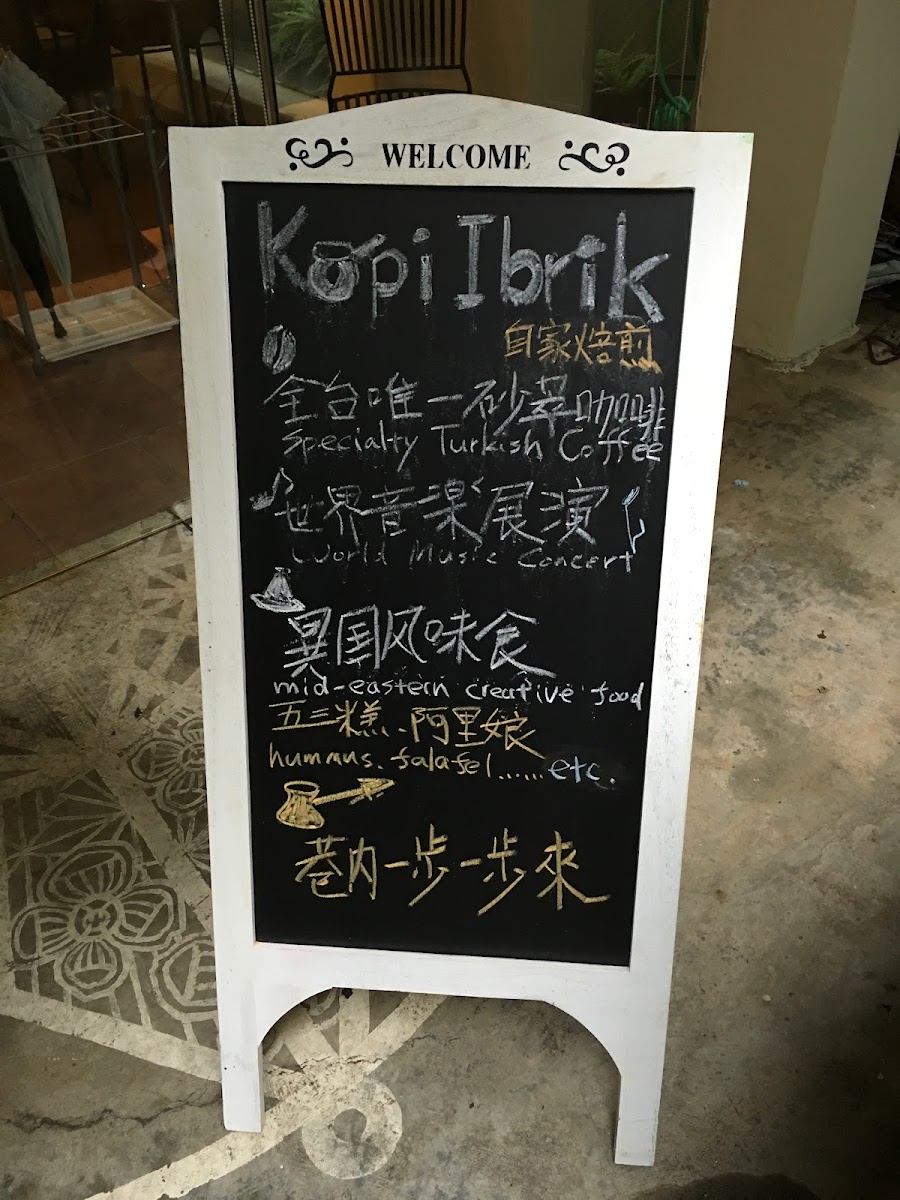 WELCOME
Kopi Ibrik
自家焙煎
全台唯一砂萃咖啡
Specialty Turkish Coffee
世界音楽展演
World Music Concert
異国风味食
mid-eastern creative food
五三糕、阿里娘
hummus. falafel......etc.
巷内一步一步來